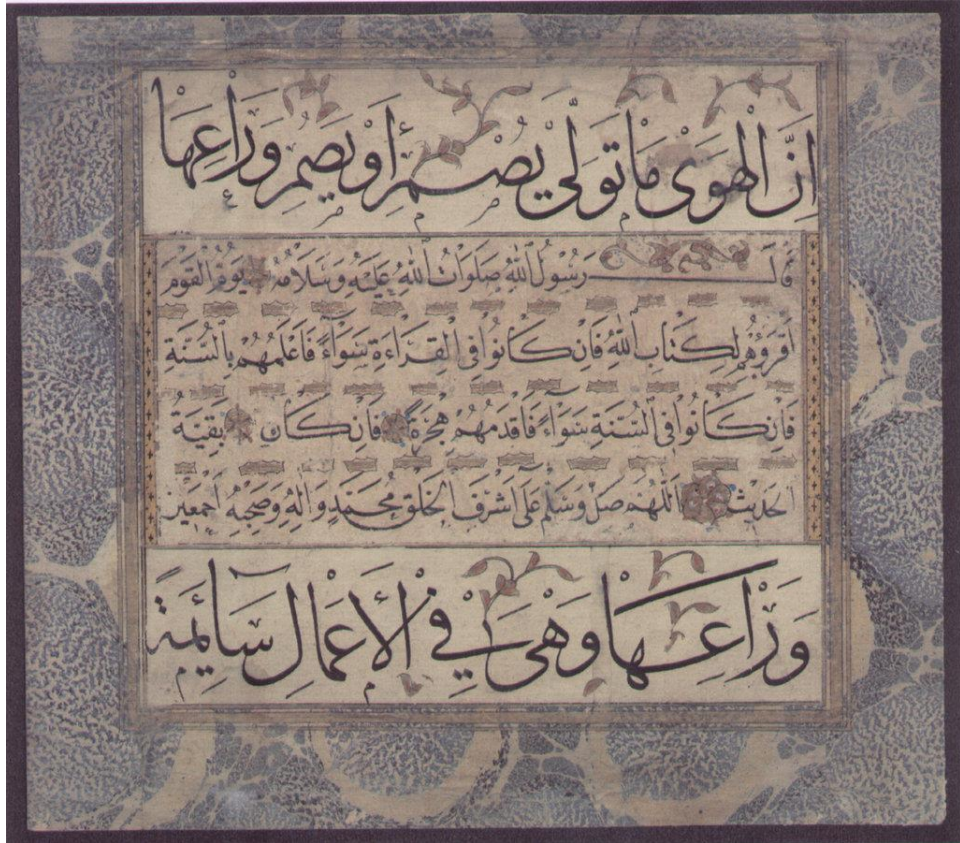 اِنَّ الْهَوَىٰ مَا تَوَلّٰى يُصْمِ أَوْ يَصِمِ وَرَاعِهَا
قَالَ رَسُولُ اللّٰهِ صَلَوَاتُ اللّٰهِ عَلَيْهِ وَسَلَامُهُ يَؤُمُّ الْقَوْمَ
أَقْرَؤُهُمْ لِكِتَابِ اللّٰهِ فَاِنْ كَانُوا فِي الْقِرَاءَةِ سَوَاءً فَأَعْلَمُهُمْ بِالسُّنَّةِ
فَاِنْ كَانُوا فِي السُّنَّةِ سَوَاءً فَأَقْدَمُهُمْ هِجْرَةً فَاِنْ كَانَ بَقِيَّةُ
الْحَدِيثِ اَللّٰهُمَّ صَلِّ وَسَلِّمْ عَلَى أَشْرَفِ الْخَلْقِ مُحَمَّدٍ وَآلِهِ وَصَحْبِهِ أَجْمَعِينَ
وَرَاعِهَا وَهْيَ فِي الْأَعْمَالِ سَائِمَةٌ